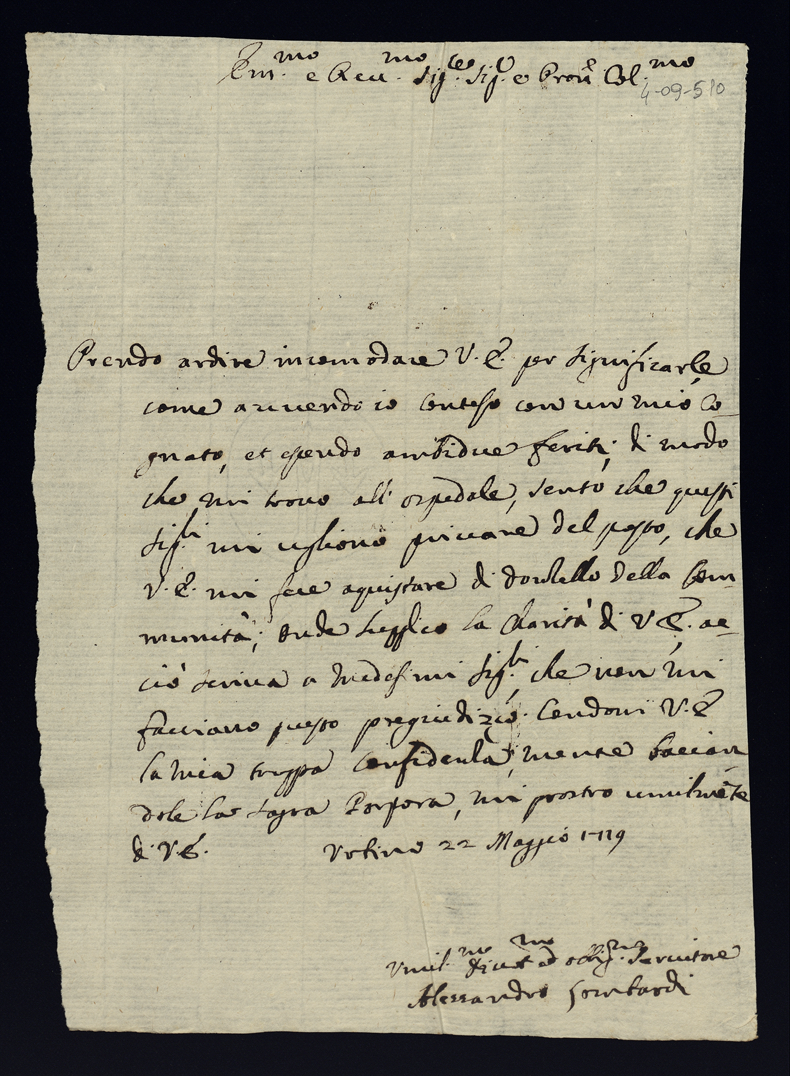 Em.mo e Reu.mo Sig.re Sig.re e Pron.e Col.mo
4-09-510
Prendo ardire incomodare V. E. per significarle
come auuendo io conteso con un mio co-
gnato, et essendo ambidue feriti, di modo
che mi trouo all' ospedale, sento che questi
Sig.ri mi uogliono priuare del posto, che
V. E. mi fece aquistare di donzello della Com-
munità; onde supplico la Charità di V. E. ac-
ciò scriua a medesimi Sig.ri che non mi
facciano questo pregiudizio. Condoni V. E.
la mia troppa confidenza, mentre bacian-
dole la sagra Porpora, mi prostro umilmẽte
di V. E. Vrbino 22 Maggio 1719
Vmil.mo Diuot.mo ed obblig.mo Seruitore
Alessandro Lombardi